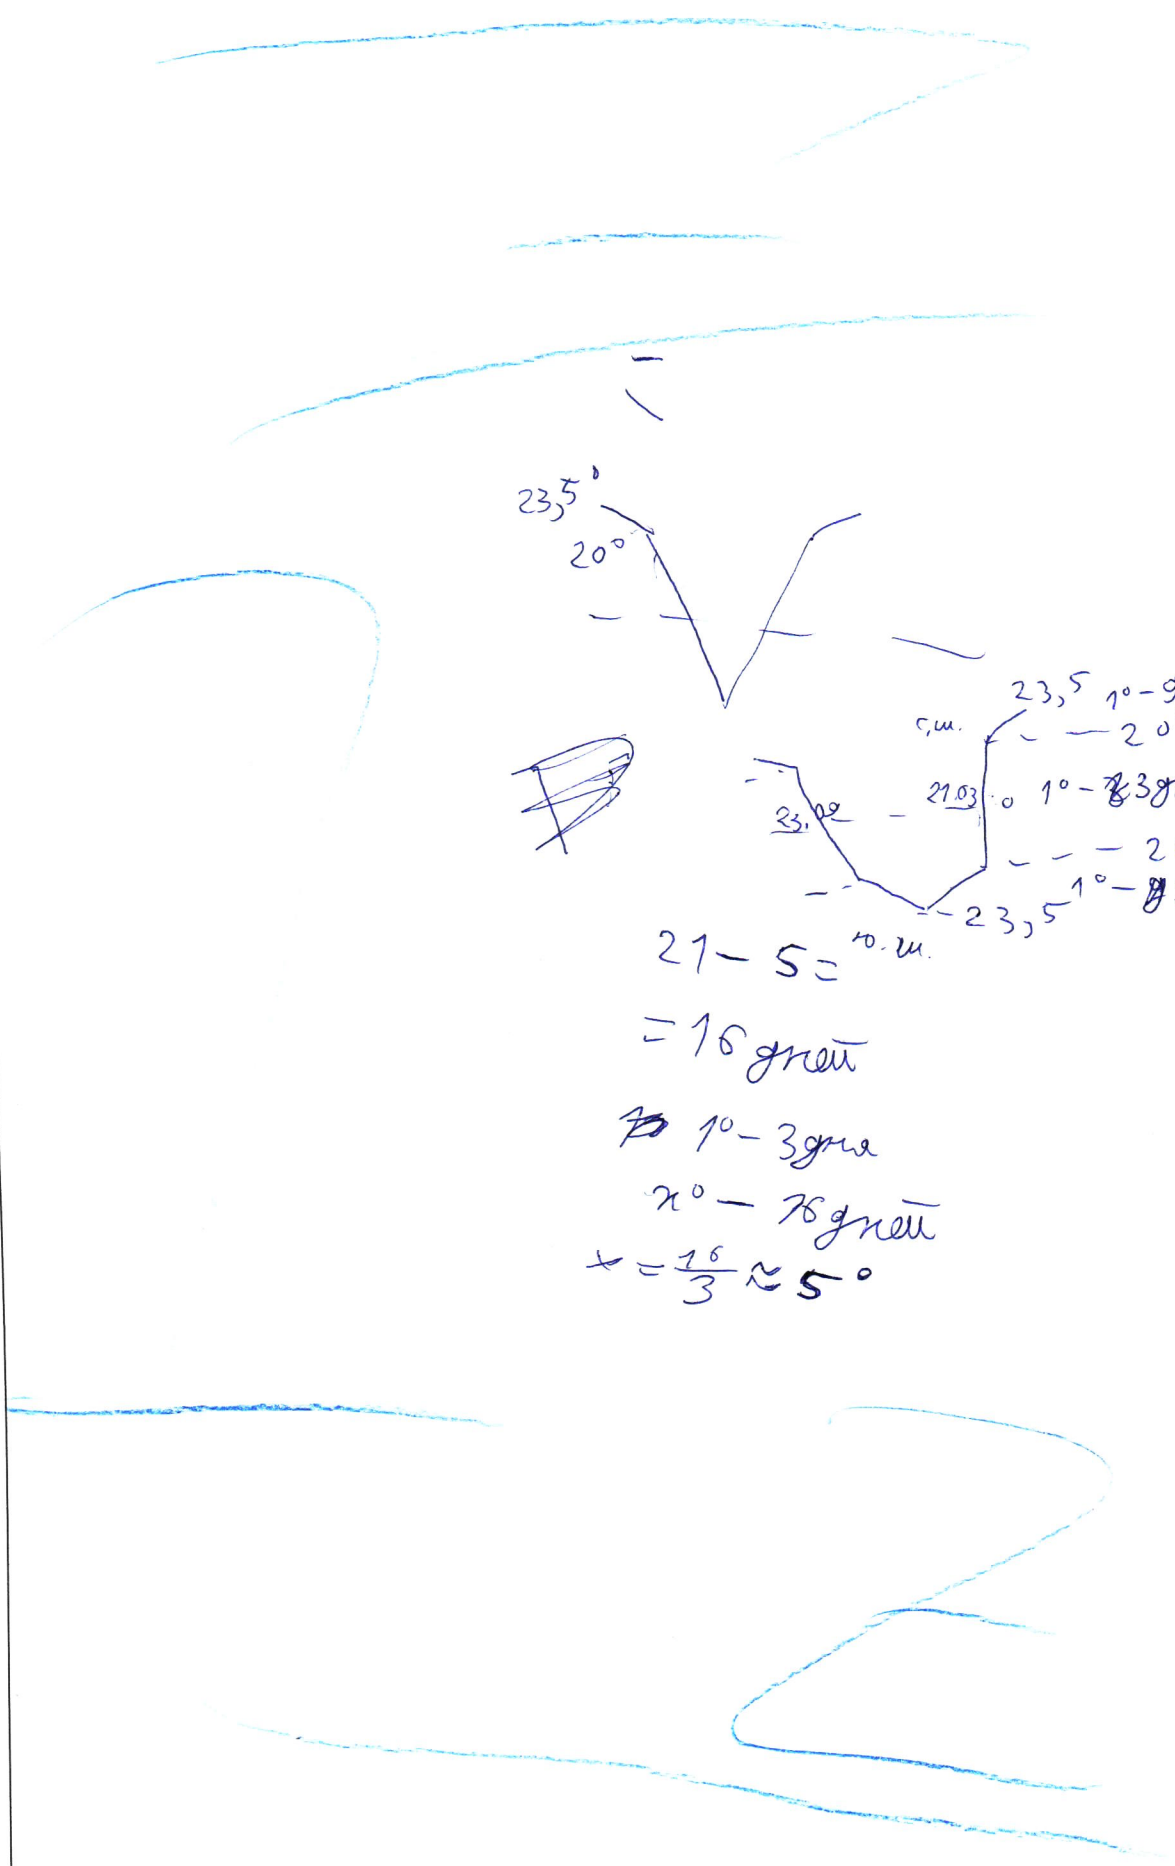 23,5°
20°
23,5 1°-9
с.ш.
20
23.09
21.03
0 1°-3д
2
1°-9
-23,5
ю.ш.
21-5=
=16 дней
1°-3дня
x°-16 дней
x=16/3≈5°